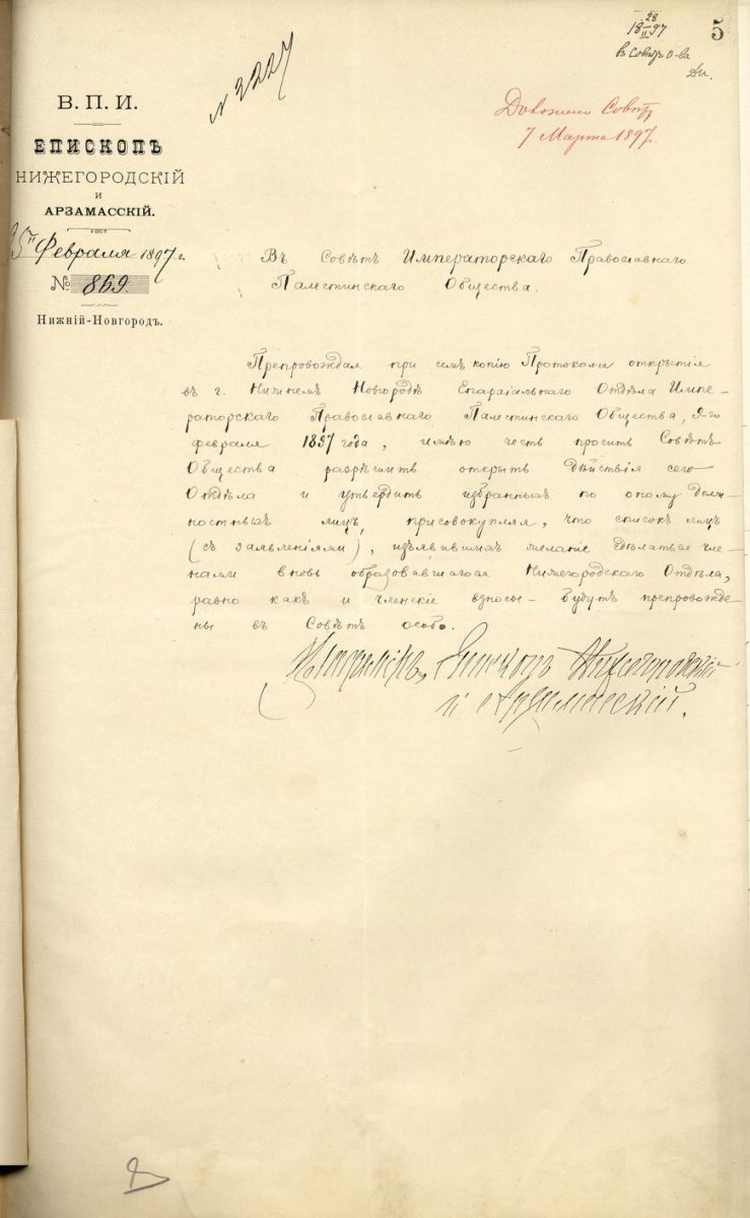 28
18 — 97
II
въ Совѣтъ О-ва
5
№ 3227
Доложено Совѣту
7 Марта 1897.
В. П. И.
ЕПИСКОПЪ
НИЖЕГОРОДСКІЙ
И
АРЗАМАССКІЙ.
25 Февраля 1897 г.
№ 869.
Нижній-Новгородъ.
Въ Совѣтъ Императорскаго Православнаго
Палестинскаго Общества.
Препровождая при семъ копію Протокола открытія
въ г. Нижнемъ Новгородѣ Епархіальнаго Отдѣла Импе-
раторскаго Православнаго Палестинскаго Общества, 9-го
февраля 1897 года, имѣю честь просить Совѣтъ
Общества разрѣшить открыть дѣйствія сего
Отдѣла и утвердить избранныхъ по оному долж-
ностныхъ лицъ, присовокупляя, что списокъ лицъ
(съ заявленіями), изъявившихъ желаніе сдѣлаться чле-
нами вновь образовавшагося Нижегородскаго Отдѣла,
равно какъ и членскіе взносы - будутъ препровожде-
ны въ Совѣтъ особо.
Епископъ Нижегородскій
и Арзамасскій.